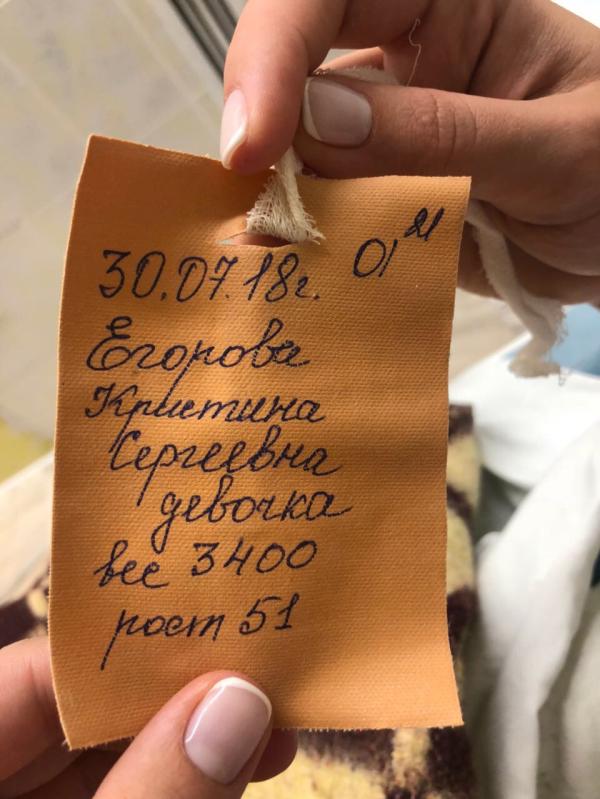 30.07.18г. 01 21
Егорова
Кристина
Сергеевна
девочка
вес 3400
рост 51